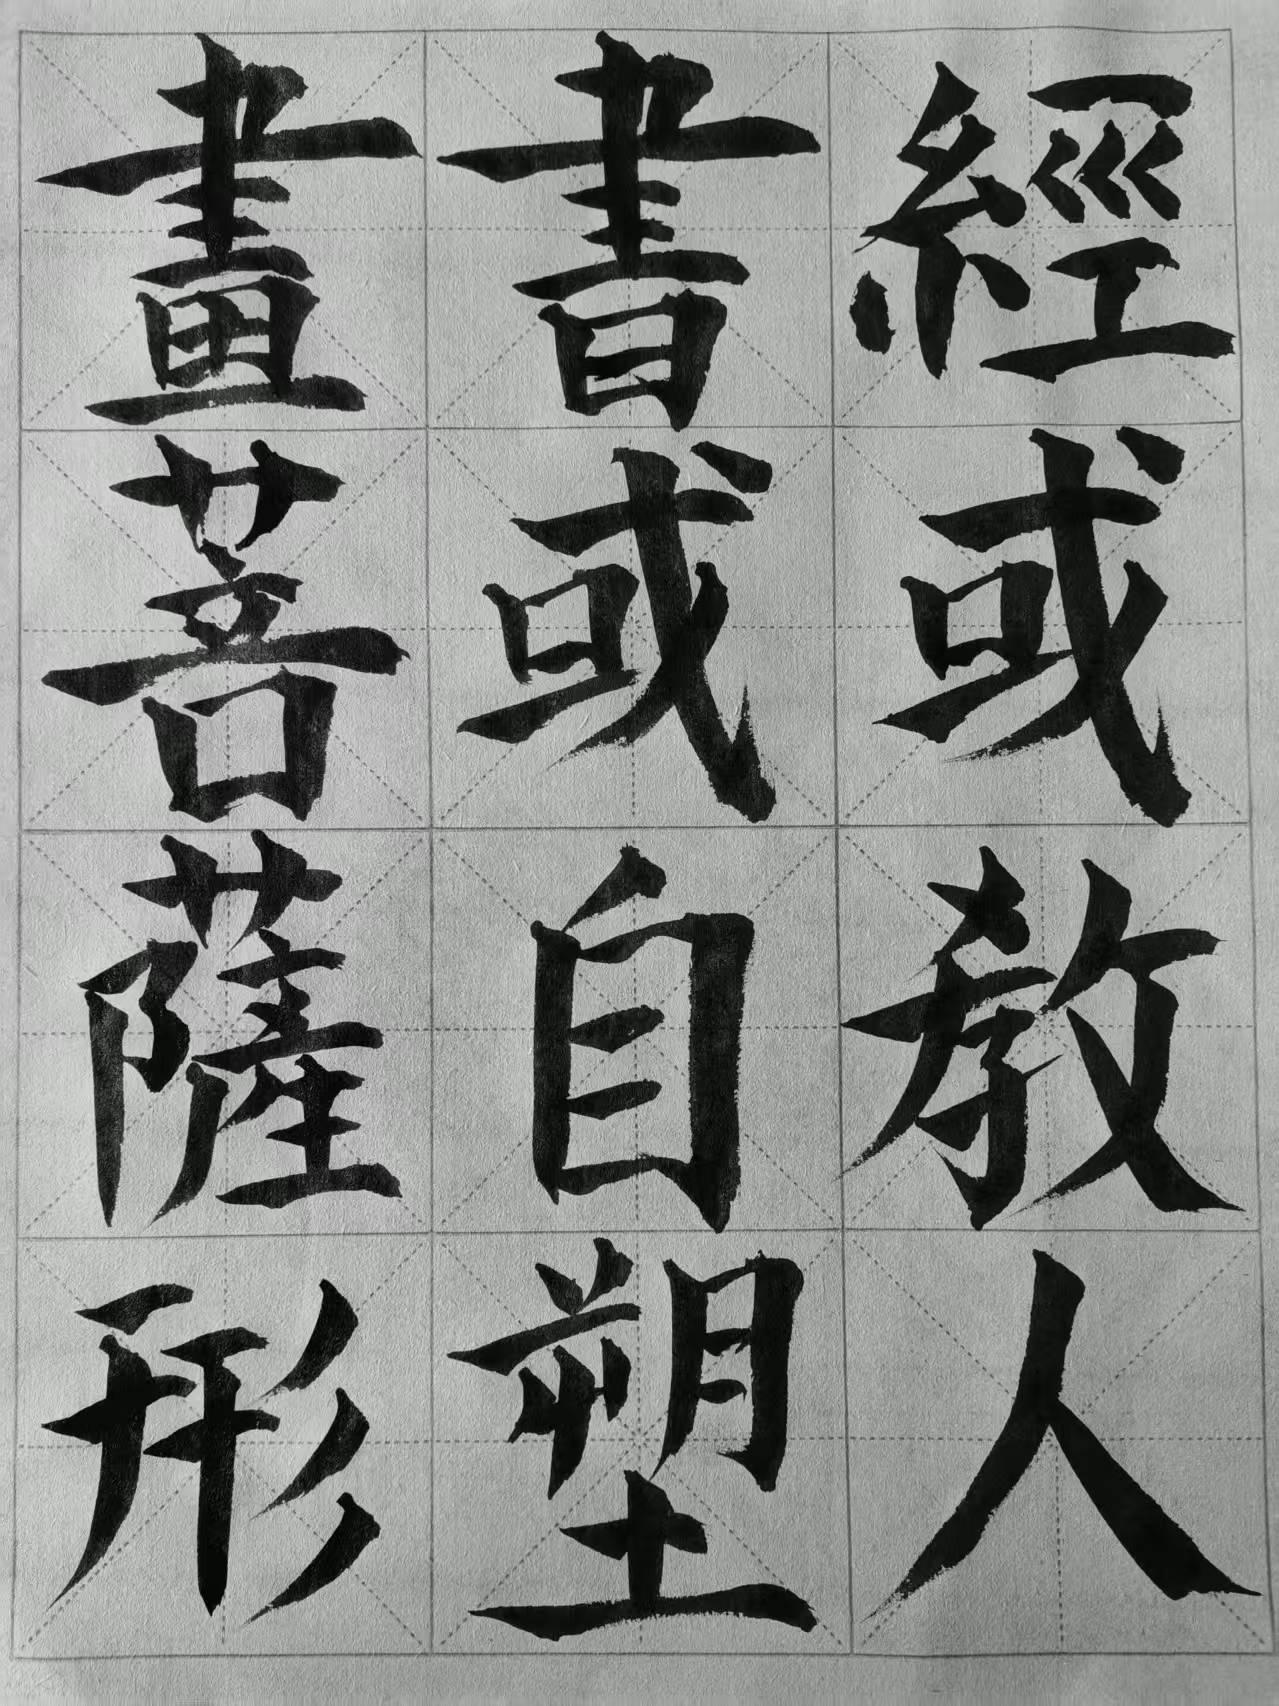 經或教人
書或自塑
畫菩薩形